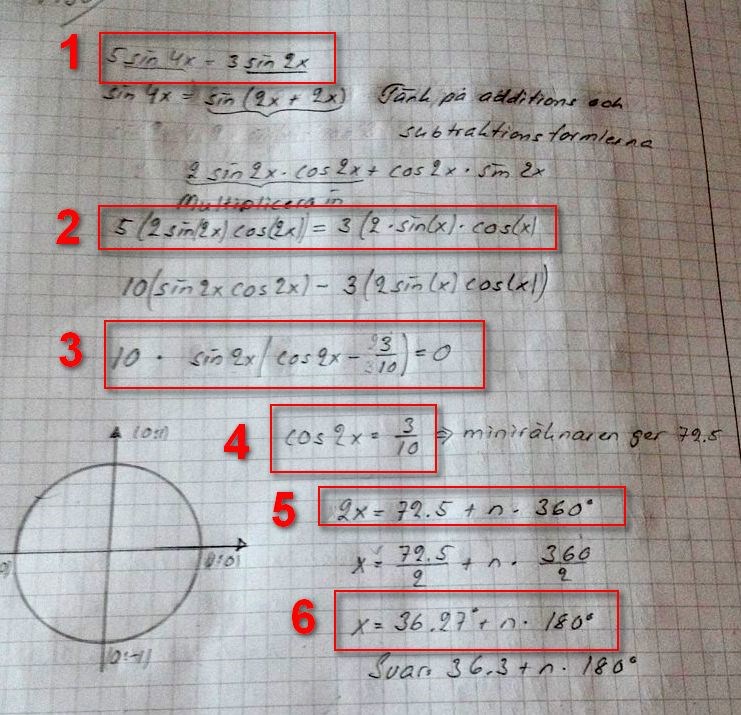 1 5 sin 4x = 3 sin 2x
sin 4x = sin (2x + 2x) Tänk på additions och
subtraktionsformlerna
2 sin 2x · cos 2x + cos 2x · sin 2x
Multiplicera in
2 5 (2 sin(2x) cos(2x)) = 3 (2 · sin(x) · cos(x)
10(sin 2x cos 2x) - 3(2 sin(x) cos(x))
3 10 · sin 2x ( cos 2x - 3/10 ) = 0
4 cos 2x = 3/10 ⇒ miniräknaren ger 72.5
5 2x = 72.5 + n · 360°
x = 72.5/2 + n · 360/2
6 x = 36.27° + n · 180°
Svar: 36.3 + n · 180°